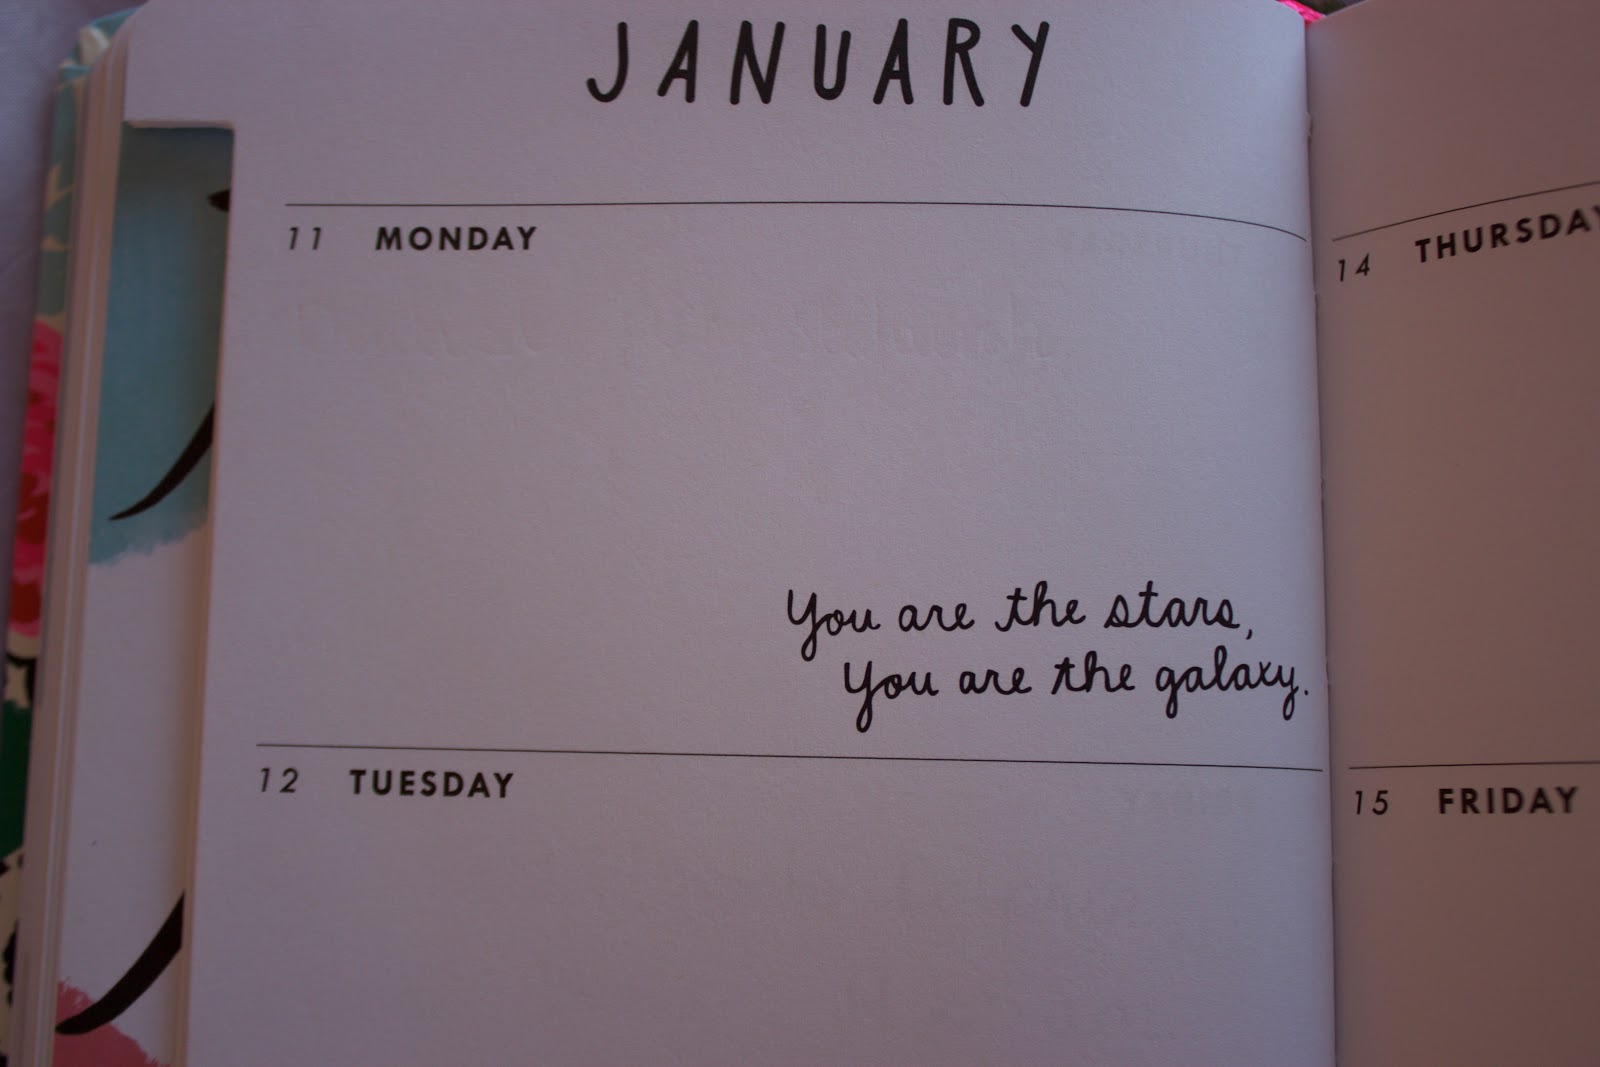 JANUARY
11 MONDAY
You are the stars,
You are the galaxy.
12 TUESDAY
14 THURSDAY
15 FRIDAY